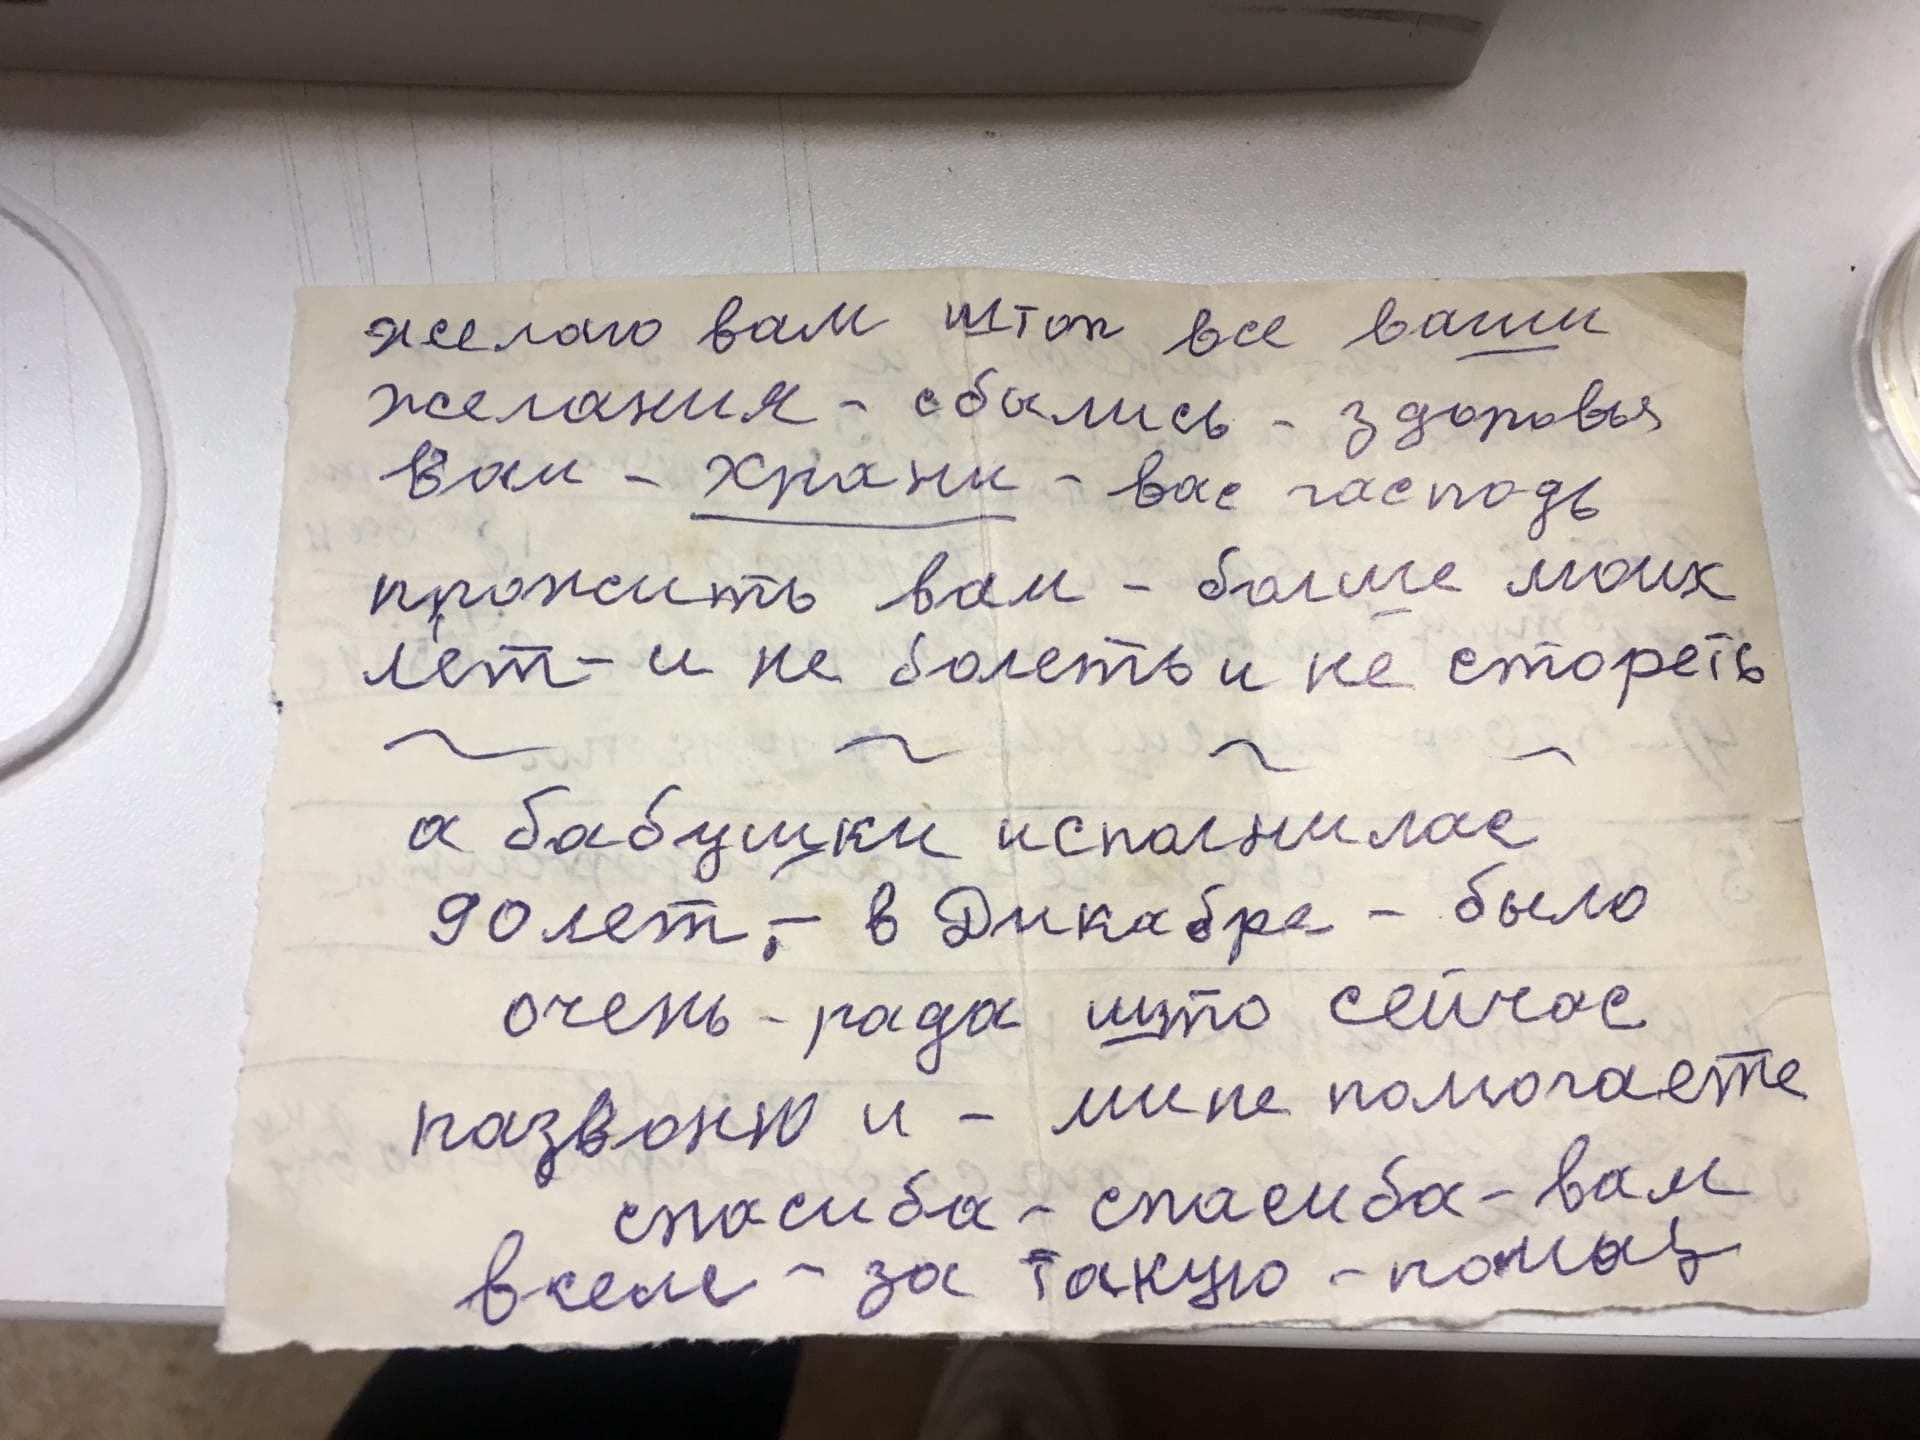 желаю вам штоп все ваши
желания - сбылись - здоровья
вам - храни - вас гасподь
прожить вам - болше моих
лет - и не болеть и не стореть
а бабушки исполнилас
90 лет, - в Дикабре - было
очень - рада што сейчас
пазвоню и - мине помогаете
спасиба - спасиба - вам
всем - за такую - помощ